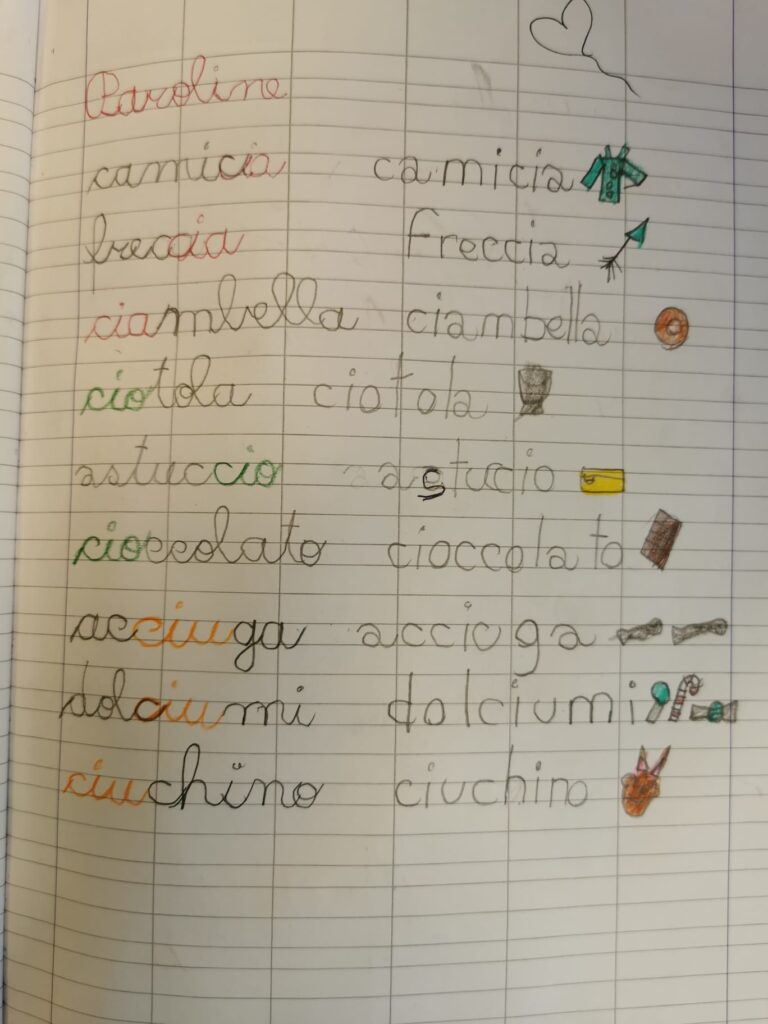 Paroline
camicia camicia
freccia freccia
ciambella ciambella
ciotola ciotola
astuccio astucio
cioccolato cioccolato
acciuga acciuga
dolciumi dolciumi
ciuchino ciuchino